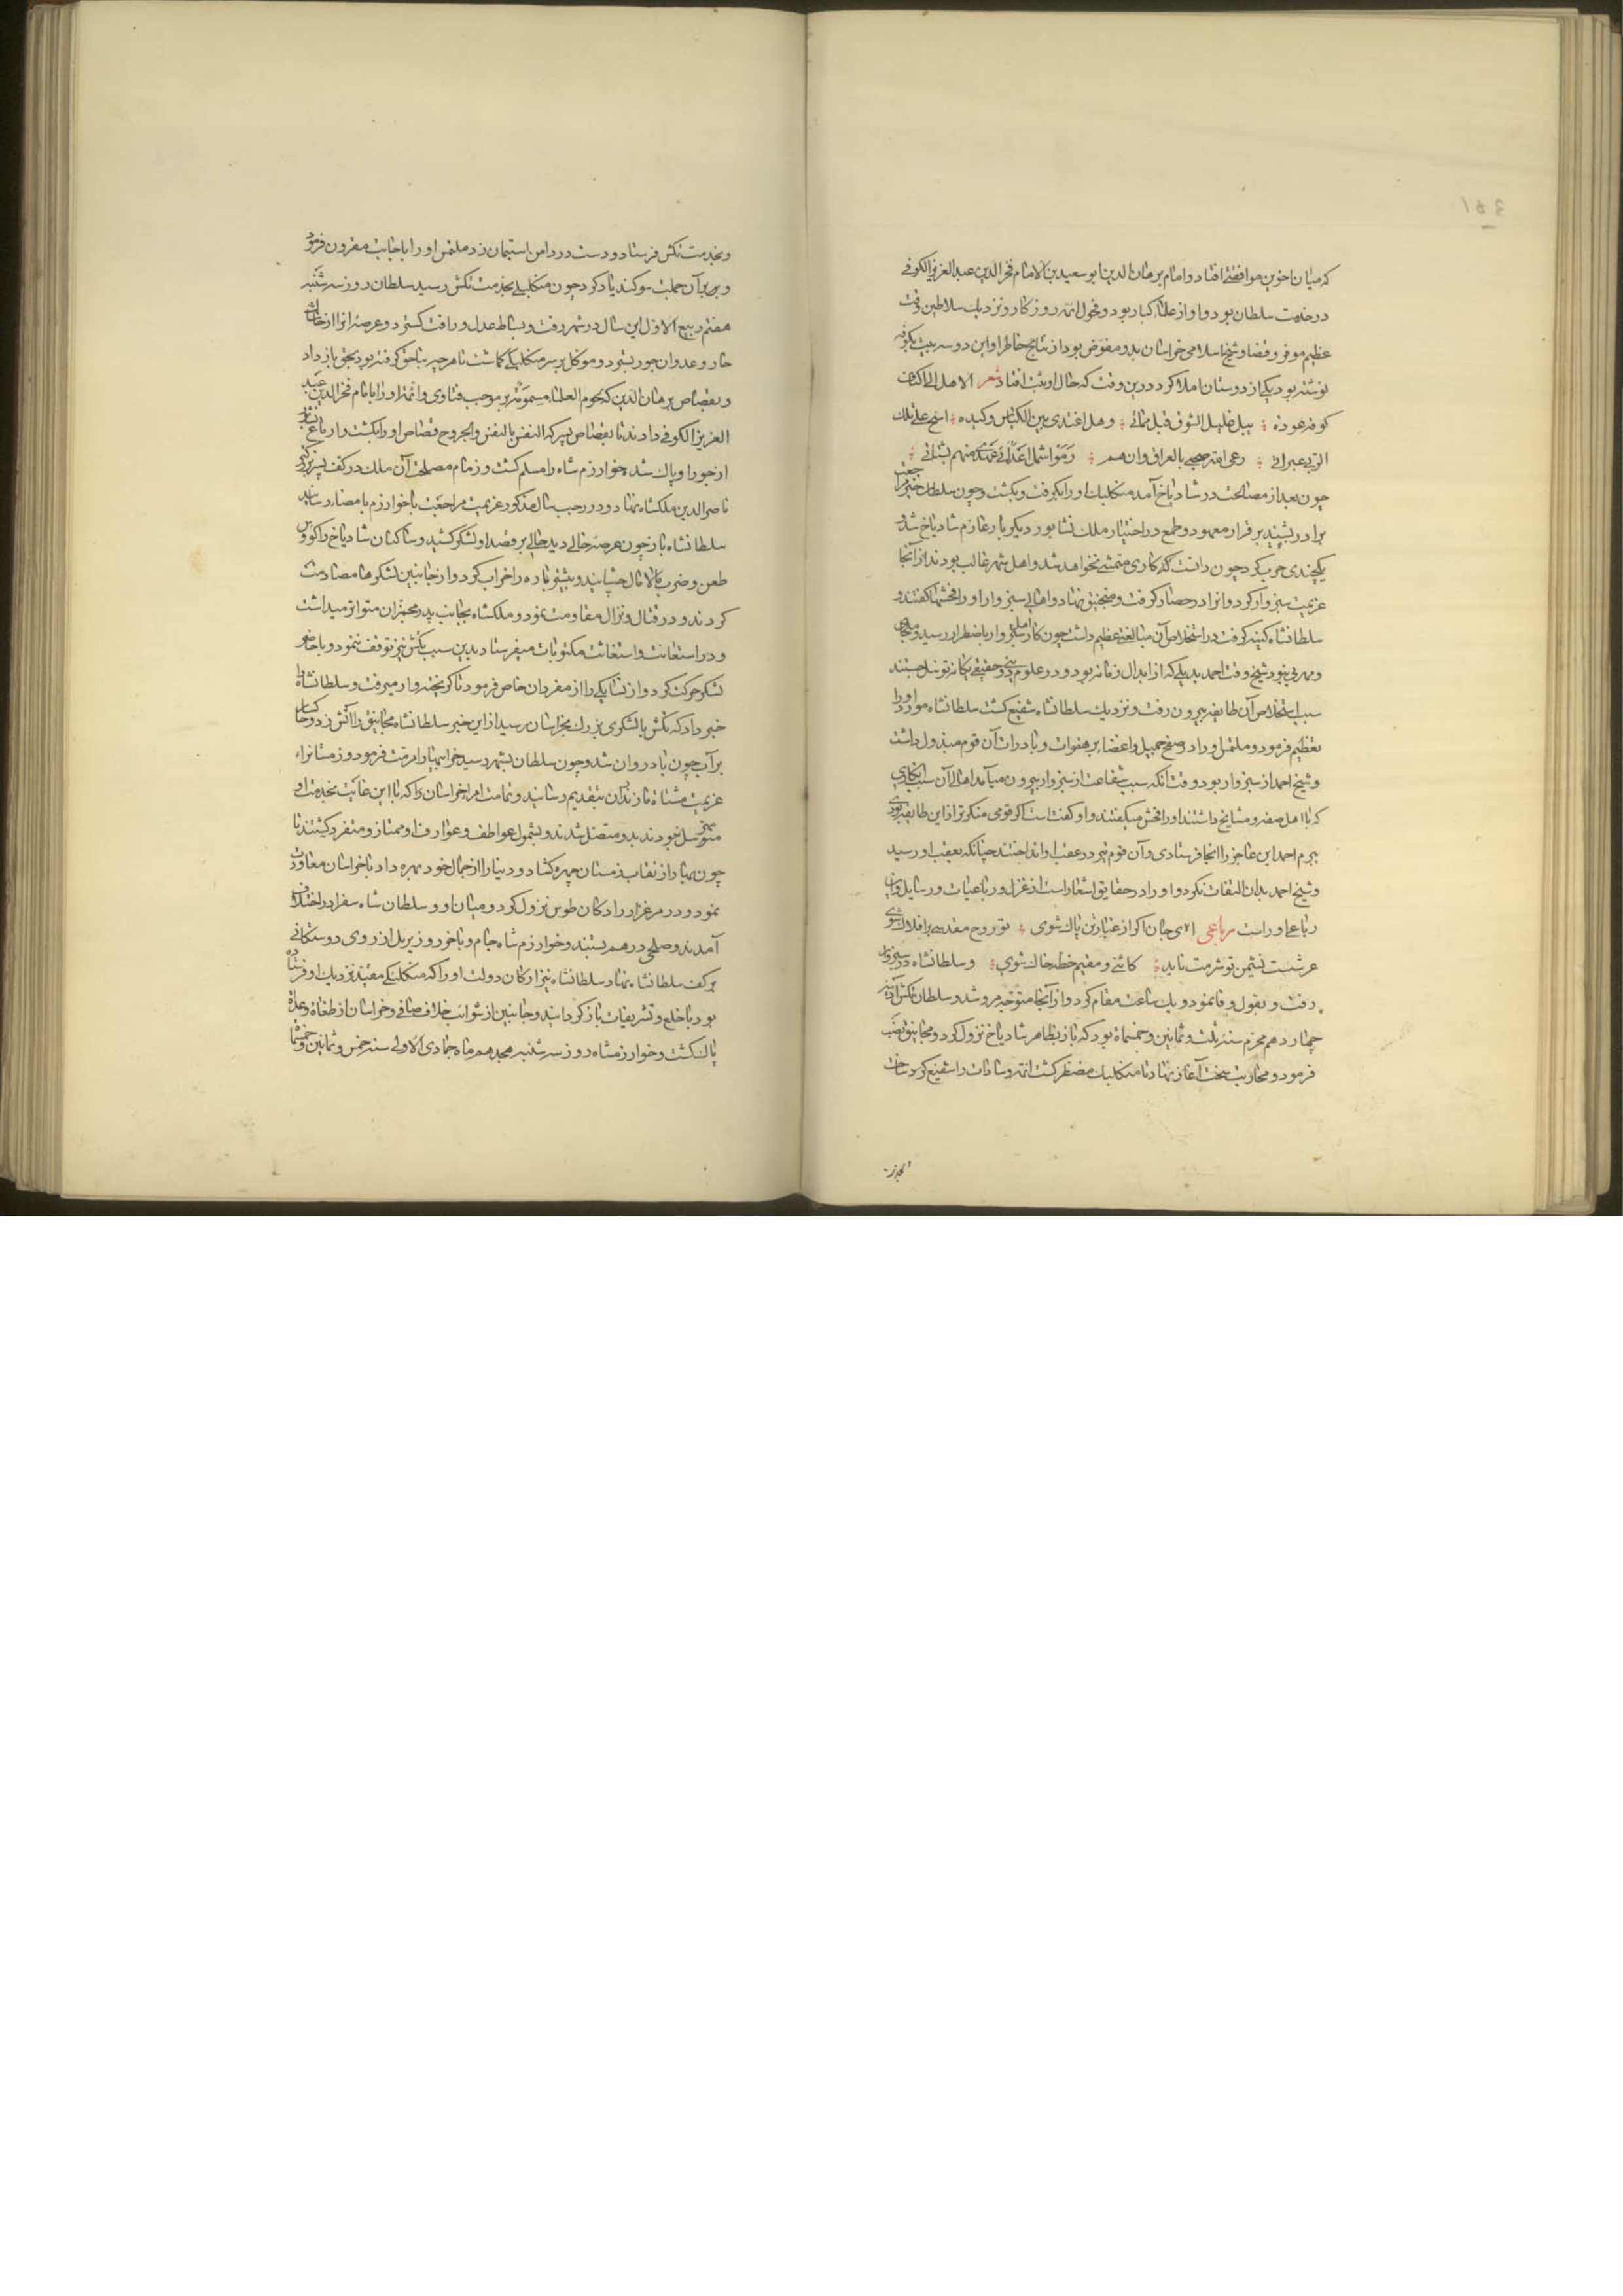 که میان اخوین موافقتی افتاد و امام برهان الدین ابو سعید بن الامام فخر الدین عبد العزیز الکوفی
در خدمت سلطان بود و او از علماء کبار بود و فحول ائمه روزکار و نزدیك سلاطین وقت
عظیم موقر و قضا و شیخ اسلامی خراسان بدو مفوض بود از نتایج خاطر او این دو سه بیت بکوفه
نوشته بود یکی از دوستان املا کرد درین وقت که حال او ثبت افتاد شعر الا هل الی اکناف
کوفه عودة یبل غلیل الشوق قبل مماتی وهل اغتدی بین الکناس وکنیده اسح علی تلك
الربی عبراتی رعی الله صحبی بالعراق وان هم رموا شمل
چون بعد از مصالحت در شادیاخ آمد منکلیك او را بکرفت و بکشت و چون سلطان خبر مراجعت
برادر بشنید بر قرار معهود و طمع در اختیار ملك نشابور دیکر بار عازم شادیاخ شد و
یکچندی حرب کرد چون دانست که کاری متمشی نخواهد شد و اهل شهر غالب بودند از آنجا
عزیمت سبزوار کرد و آنرا در حصار کرفت و منجنیق نهاد و اهالی سبزوار او را فحشها کفتند و
سلطانشاه کینه کرفت در استخلاص آن مبالغتی عظیم داشت چون کار اهل سبزوار باضطرار رسید و ملجائی
و مهربی نبود شیخ وقت احمد بدیلی که از ابدال زمانه بود و در علوم دینی و حقیقی یکانه توسل جستند
سبب استخلاص آن طایفه بیرون رفت و نزدیك سلطانشاه شفیع کشت سلطانشاه مورد او را
تعظیم فرمود و ملتمس او را در صفح جمیل و اغضا بر هفوات و بادرات آن قوم مبذول داشت
و شیخ احمد از سبزوار بود و وقت آنکه سبب شفاعت از سبزوار بیرون میآمد اهالی آن سبب انکاری
که با اهل صفه و مشایخ داشتند او را فحش میکفتند و او کفته است اکر قومی منکرتر از این طایفه بودی
بجرم احمد این عاجز را آنجا فرستادی و آن قوم تیر در عقب او انداختند چنانکه بعقب او رسید
و شیخ احمد بدان التفات نکرد و او را در حقایق اشعار است از غزل و رباعیات و رسایل و این
رباعی او راست رباعی ای جان اکر از غبار تن پاك شوی تو روح مقدسی بر افلاك شوی
عرشست نشیمن تو شرمت ناید کائی و مقیم خطه خاك شوی و سلطانشاه در سبزوار
رفت و بقول وفا نمود و یك ساعت مقام کرد و از آنجا متوجه مرو شد و سلطان تکش آدینه
چهاردهم محرم سنه ثلث و ثمانین و خمسمائه بود که باز بظاهر شادیاخ نزول کرد و مجانیق نصب
فرمود و محاربت سخت آغاز نهاد تا منکلیك مضطر کشت ائمه و سادات را شفیع کرد
و بخدمت تکش فرستاد و دست در دامن استیمان زد ملتمس او را باجابت مقرون فرمود
و بر بر آن جملت سوکند یاد کرد چون منکلیکی بخدمت تکش رسید سلطان روز سه شنبه
هفتم ربیع الاول این سال در شهر رفت و بساط عدل و رافت کسترد و عرصه آنرا از خاشاك
خار و عدوان جور بسترد و موکل بر سر منکلیکی کماشت تا هرچه بناحق کرفته بود بحق باز داد
و بقصاص برهان الدین که لحوم العلماء مسمومة بر موجب فتاوی و ائمه او را با امام فخر الدین عبد
العزیز الکوفی دادند تا بقصاص پسر که النفس بالنفس والجروح قصاص او را بکشت و ارباع
از جور او پاك شد خوارزم شاه را مسلم کشت و زمام مصلحت آن ملك در کف پسر بزرکتر
ناصر الدین ملکشاه نهاد و در رجب سال مذکور عزیمت مراجعت با خوارزم بامضا رسانید
سلطانشاه باز چون عرصه خالی دید حالی بر قصد او لشکر کشید و ساکنان شادیاخ را کووس
طعن و ضرب مالامال چشانید و بیشتر باره را خراب کرد و از جانبین لشکرها مصادمت
کردند و در قتال و نزال مقاومت نمود و ملکشاه بجانب پدر مخبران متواتر میداشت
و در استعانت و استغاثت مکتوبات میفرستاد بدین سبب تکش نیز توقف ننمود و با حاضر
لشکر حرکت کرد و از نسا یکی را از مفردان خاص فرمود تا کریخته وار میرفت و سلطانشاه را
خبر داد که تکش با لشکری بزرك بخراسان رسید از این خبر سلطانشاه مجانیق را آتش زد و خاکسار
بر آب چون باد روان شد و چون سلطان بشهر رسید خرابیها را مرمت فرمود و زمستانرا
عزیمت مشتاة مازندران بتقدیم رسانید و تمامت امراء خراسان را که تا این غایت بخدمت او
متوسل نبودند بدو متصل شدند و بشمول عواطف و عوارف او ممتاز و متفرد کشتند تا
چون بهار از نقاب زمستان چهره کشاد و دنیا را از جمال خود بهره داد با خراسان معاودت
نمود و در مرغزار رادکان طوس نزول کرد و میان او و سلطان شاه سفرا در اختلاف
آمدند و صلحی در هم بستند و خوارزم شاه جام و باخرز و زیر پل از روی دوستکانی
بر کف سلطانشاه نهاد سلطانشاه نیز ارکان دولت او را که منکلیکی مقید نزدیك او فرستاده
بود با خلع و تشریفات باز کردانید و جانبین از شوائب خلاف صافی و خراسان از طغاة وعداة
پاك کشت و خوارزمشاه روز سه شنبه هجدهم ماه جمادی الاولی سنه خمس و ثمانین و خمسمائه